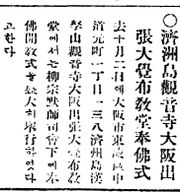 ○濟洲島觀音寺大阪出
張大覺布敎堂奉佛式
去十月二日에大阪市東成區中
道元町一丁目一三八濟州島漢
拏山觀音寺大阪出張大覺布敎
堂에서는柳宗默師司會下에奉
佛開敎式을盛大히擧行하엿다
고한다